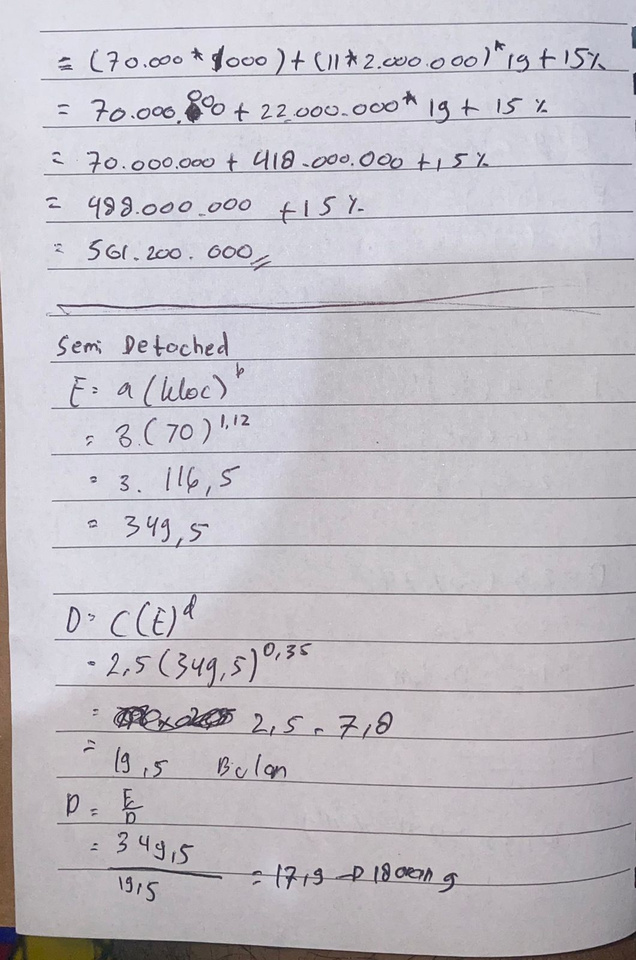 = (70.000 * 1000) + (11 * 2.000.000) * 19 + 15%
= 70.000.000 + 22.000.000 * 19 + 15 %
= 70.000.000 + 418.000.000 + 15 %
= 488.000.000 + 15 %
= 561.200.000
Semi Detached
E = a (kloc)^b
= 3. (70)^1,12
= 3. 116,5
= 349,5
D = C (E)^d
= 2,5 (349,5)^0,35
= 2,5 . 7,8
= 19,5 Bulan
P = E/D
= 349,5/19,5 = 17,9 → 18 orang